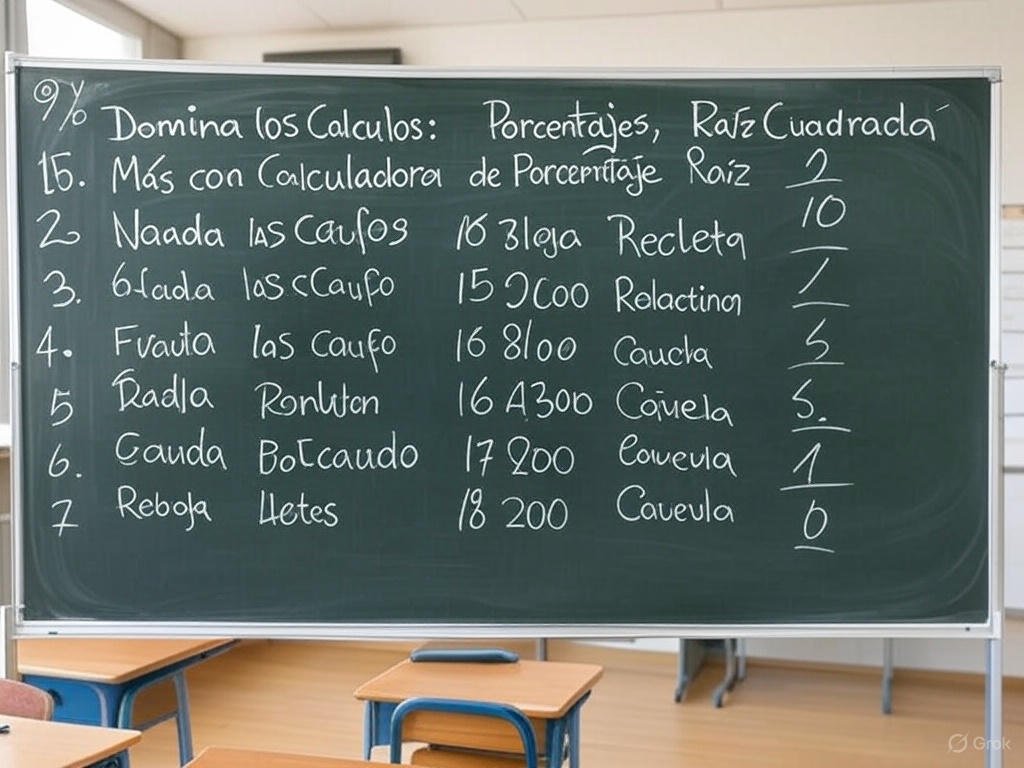 9%
Domina los Calculos: Porcentajes, Raíz Cuadrada
15. Más con Calculadora de Porcentaje Raíz 2
2 Naada las Caufos 16 3lega Recleta 10
3. las cCaufo 15 Rolactino 1
4. Fvauta las caufo 16 8100 Caucla 5
5 Radla 16 A300 Caiuela 5.
6. Gauda Boccaudo 17 200 Couevla 1
7 Reboja Lletes 18 200 Cauevla 0
Grok